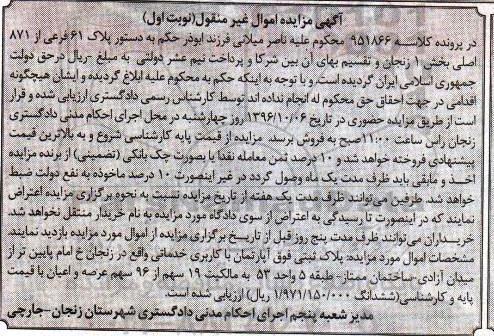 آگهی مزایده اموال غیر منقول(نوبت اول)
در پرونده کلاسه ۹۵۱۸۶۶ محکوم علیه ناصر میلانی فرزند ابوذر حکم به دستور پلاک ۶۱ فرعی از ۸۷۱
اصلی بخش ۱ زنجان و تقسیم بهای آن بین شرکا و پرداخت نیم عشر دولتی به مبلغ -ریال درحق دولت
جمهوری اسلامی ایران گردیده است. و با توجه به اینکه حکم به محکوم علیه ابلاغ گردیده و ایشان هیچگونه
اقدامی در جهت احقاق حق محکوم له انجام نداده اند توسط کارشناس رسمی دادگستری ارزیابی شده و قرار
است از طریق مزایده حضوری در تاریخ ۱۳۹۶/۱۰/۰۶ روز چهارشنبه در محل اجرای احکام مدنی دادگستری
زنجان راس ساعت ۱۱:۰۰صبح به فروش برسد. مزایده از قیمت پایه کارشناسی شروع و به بالاترین قیمت
پیشنهادی فروخته خواهد شد و ۱۰ درصد ثمن معامله نقدا یا بصورت چک بانکی (تضمینی) از برنده مزایده
اخذ و مابقی باید ظرف مدت یک ماه وصول گردد در غیر اینصورت ۱۰ درصد ماخوذه به نفع دولت ضبط
خواهد شد. طرفین می‌توانند ظرف مدت یک هفته از تاریخ مزایده نسبت به نحوه برگزاری مزایده اعتراض
نمایند که در اینصورت تا رسیدگی به اعتراض از سوی دادگاه مورد مزایده به نام خریدار منتقل نخواهد شد.
خریداران می‌توانند ظرف مدت پنج روز قبل از تاریخ برگزاری مزایده از اموال مورد مزایده بازدید نمایند.
مشخصات اموال مورد مزایده: پلاک ثبتی فوق آپارتمان با کاربری خدماتی واقع در زنجان خ امام پایین تر از
میدان آزادی-ساختمان ممتاز- طبقه ۵ واحد ۵۳ به مالکیت ۱۹ سهم از ۹۶ سهم عرصه و اعیان با قیمت
پایه و کارشناسی(ششدانگ ۱/۹۷۱/۱۵۰/۰۰۰ ریال) ارزیابی شده است.
مدیر شعبه پنجم اجرای احکام مدنی دادگستری شهرستان زنجان-جارچی